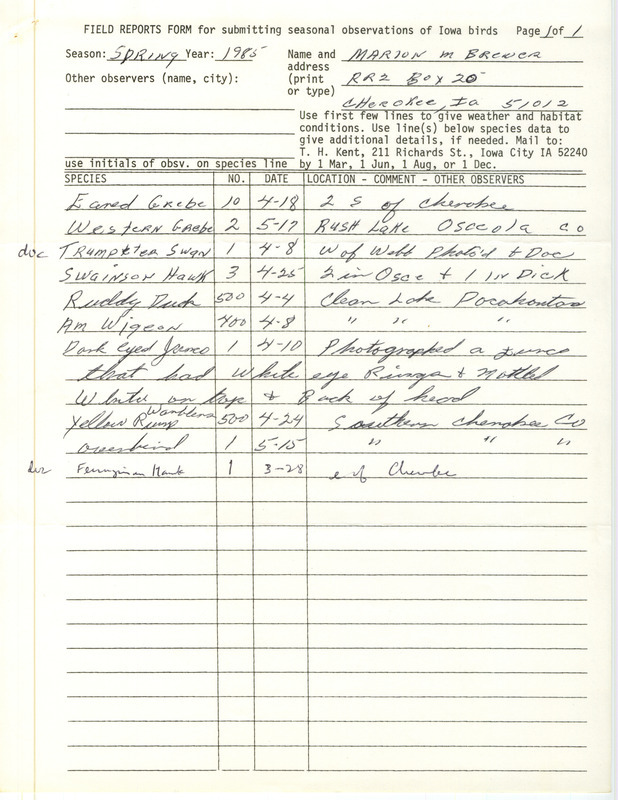 FIELD REPORTS FORM for submitting seasonal observations of Iowa birds Page 1 of 1
Season: SPRING Year: 1985 Name and MARION M BREWER
address
Other observers (name, city): (print RR2 BOX 20
or type)
CHEROKEE, Ia 51012
Use first few lines to give weather and habitat
conditions. Use line(s) below species data to
give additional details, if needed. Mail to:
T. H. Kent, 211 Richards St., Iowa City IA 52240
use initials of obsv. on species line by 1 Mar, 1 Jun, 1 Aug, or 1 Dec.
SPECIES NO. DATE LOCATION - COMMENT - OTHER OBSERVERS
Eared Grebe 10 4-18 2 S of Cherokee
Western Grebe 2 5-17 Rush Lake Osceola Co
doc Trumpeter Swan 1 4-8 W of Webb Photo'd & Doc
Swainson Hawk 3 4-25 2 in Osce + 1 in Dick
Ruddy Duck 500 4-4 Clear Lake Pocahontas
Am Wigeon 400 4-8 " " "
Dark eyed Junco 1 4-10 Photographed a Junco
that had white eye Rings & Mottled
White on top & Back of head
Yellow Rump Warblers 500 4-24 Southern Cherokee Co
ovenbird 1 5-15 " " "
doc Ferruginian Hawk 1 3-28 e of Cherokee